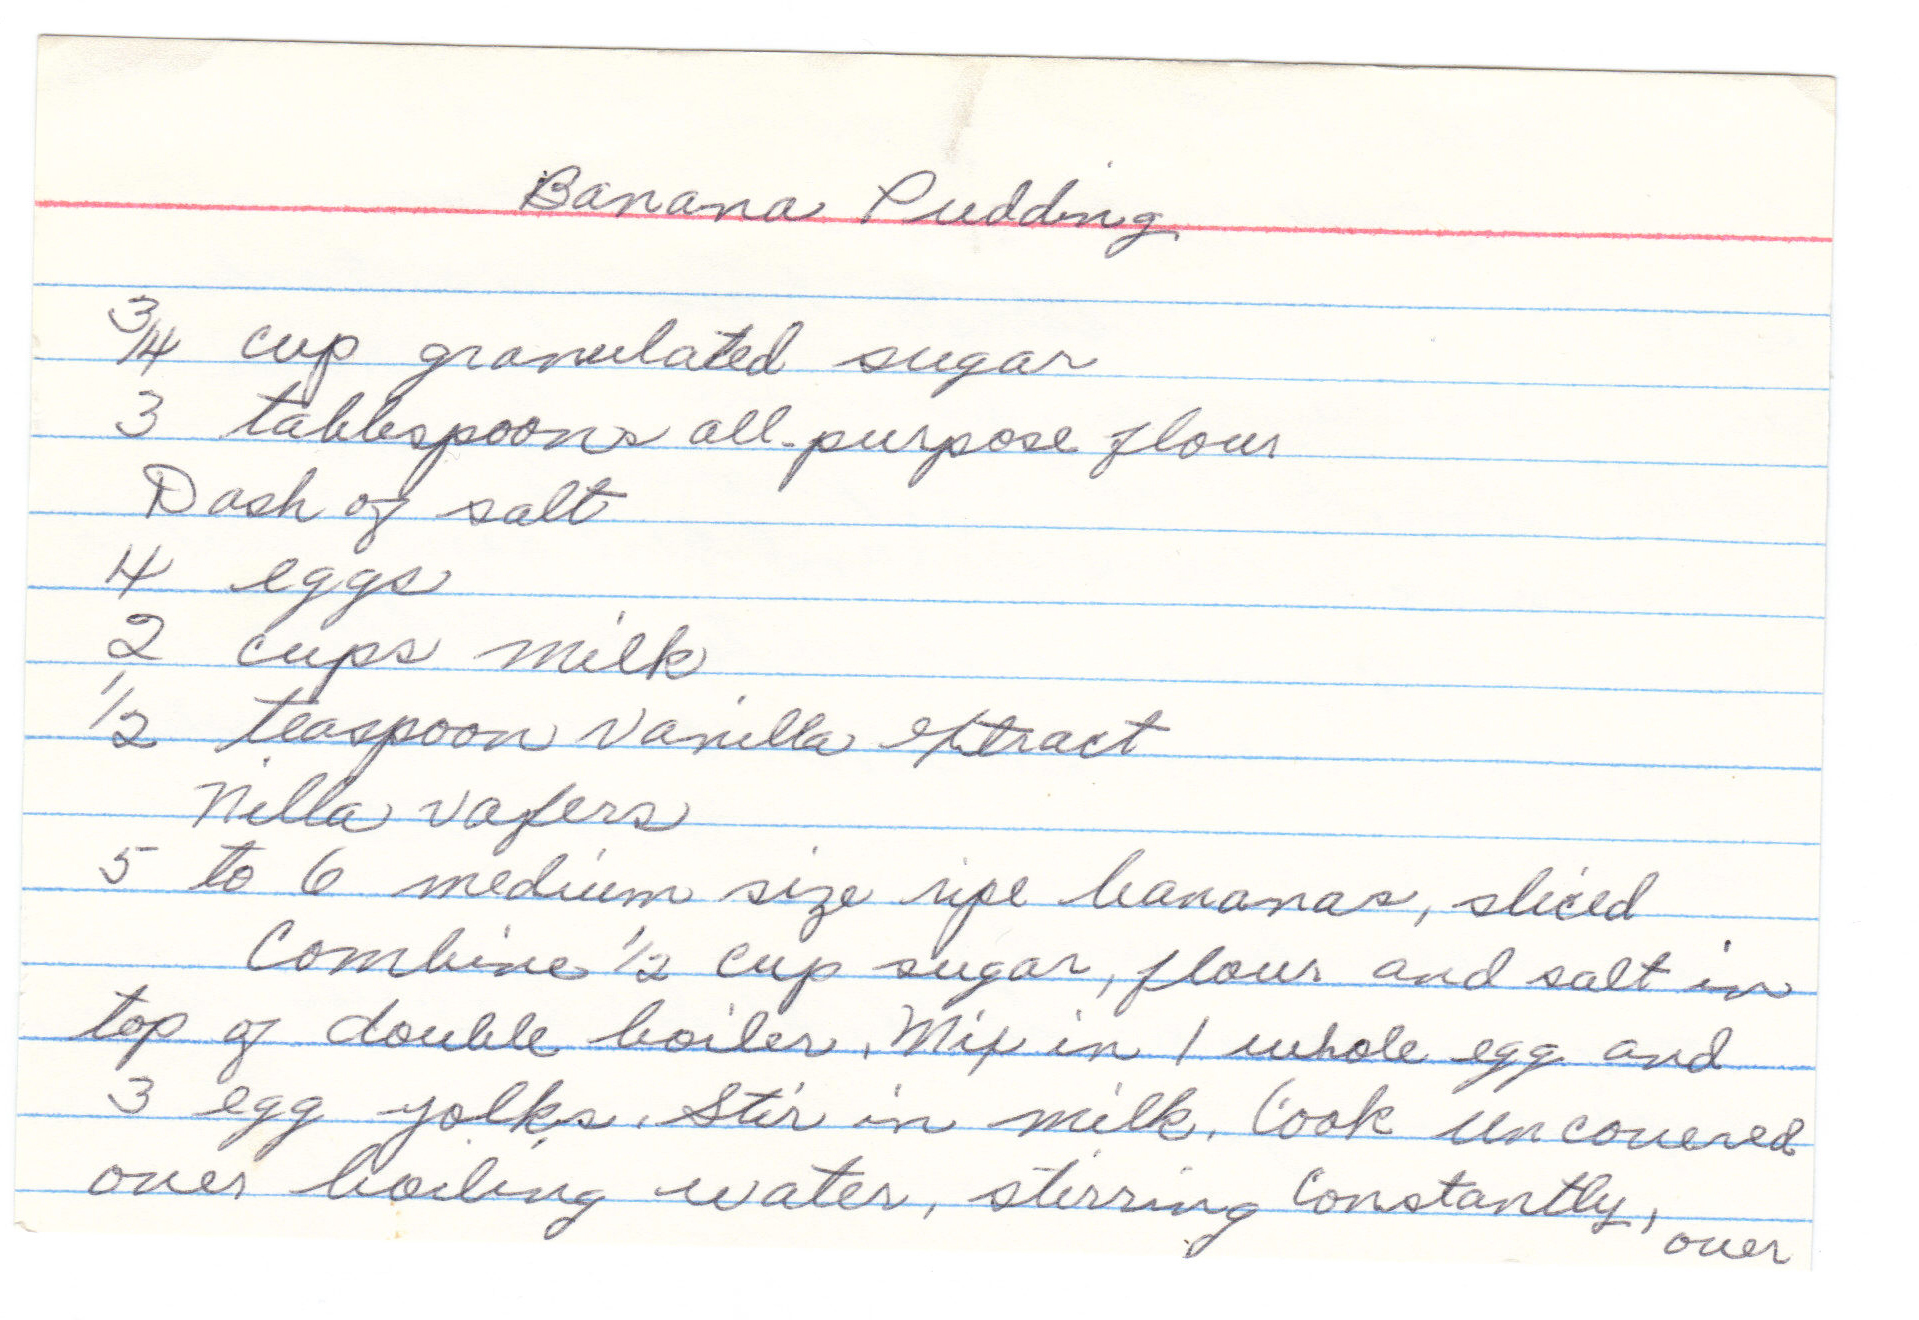 Banana Pudding
3/4 cup granulated sugar
3 tablespoons all-purpose flour
Dash of salt
4 eggs
2 cups milk
1/2 teaspoon vanilla extract
Nilla vafers
5 to 6 medium size ripe bananas, sliced
Combine 1/2 cup sugar, flour and salt in
top of double boiler. Mix in 1 whole egg and
3 egg yolks. Stir in milk. Cook uncovered
over boiling water, stirring constantly,
over